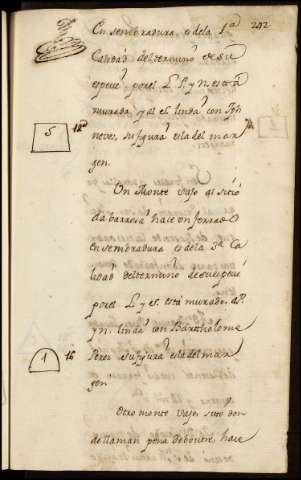 En sembradura es dela 1ª 242
Calidad deltermino de su
especie por el L. P. y N. está
murada, y al es. linda con Jph
neves, su figura es la del mar
gen.
5 18
Un Monte vajo al sitio
da barreia hace un ferrado
en sembradura es dela 3ª Ca
lidad deltermino de su especie
por el L. y es. está murado, al P.
y n. linda con Bartholome
Peres su figura es la del mar
gen
1 16
Otro monte vajo sitio don
de llaman pena de boutre, hace